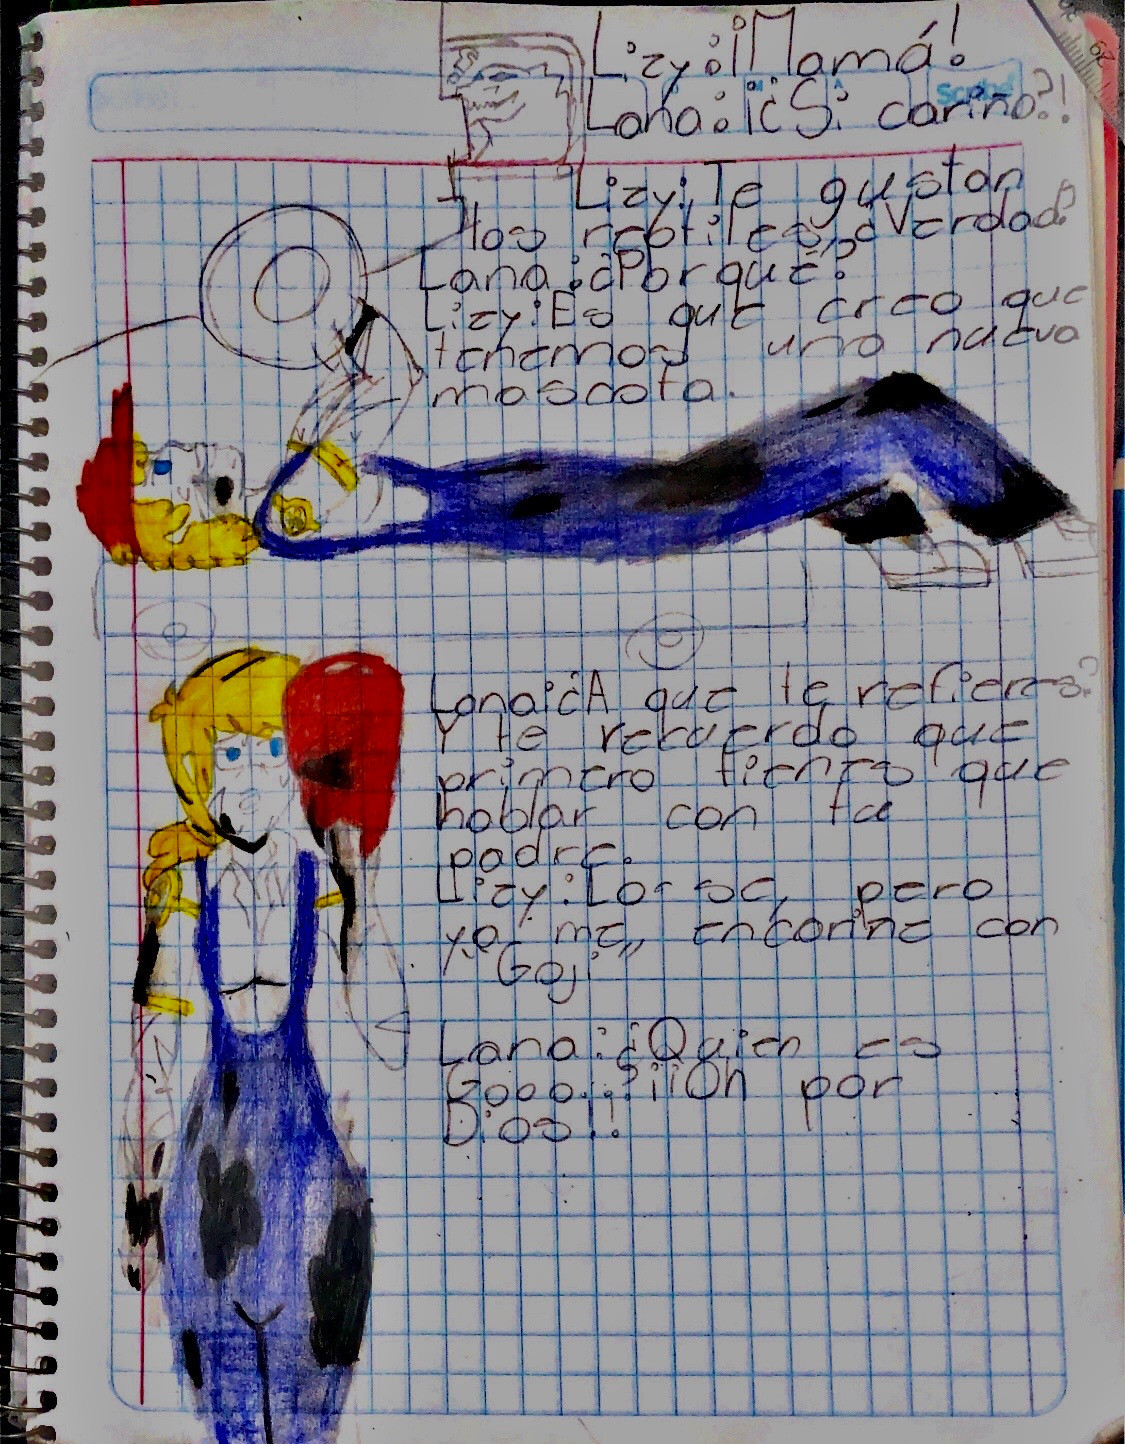 Lizy:¡Mamá!
Lana:¡¿Si cariño?!
Lizy:Te gustan
los reptiles, ¿Verdad?
Lana:¿Por qué?
Lizy:Es que creo que
tenemos una nueva
mascota.
Lana:¿A que te refieres?
Y te recuerdo que
primero tienes que
hablar con tu
padre.
Lizy:Lo se, pero
yo me encariñe con
"Goji"
Lana:¿Quien es
Gooo...?¡¡Oh por
Dios!!